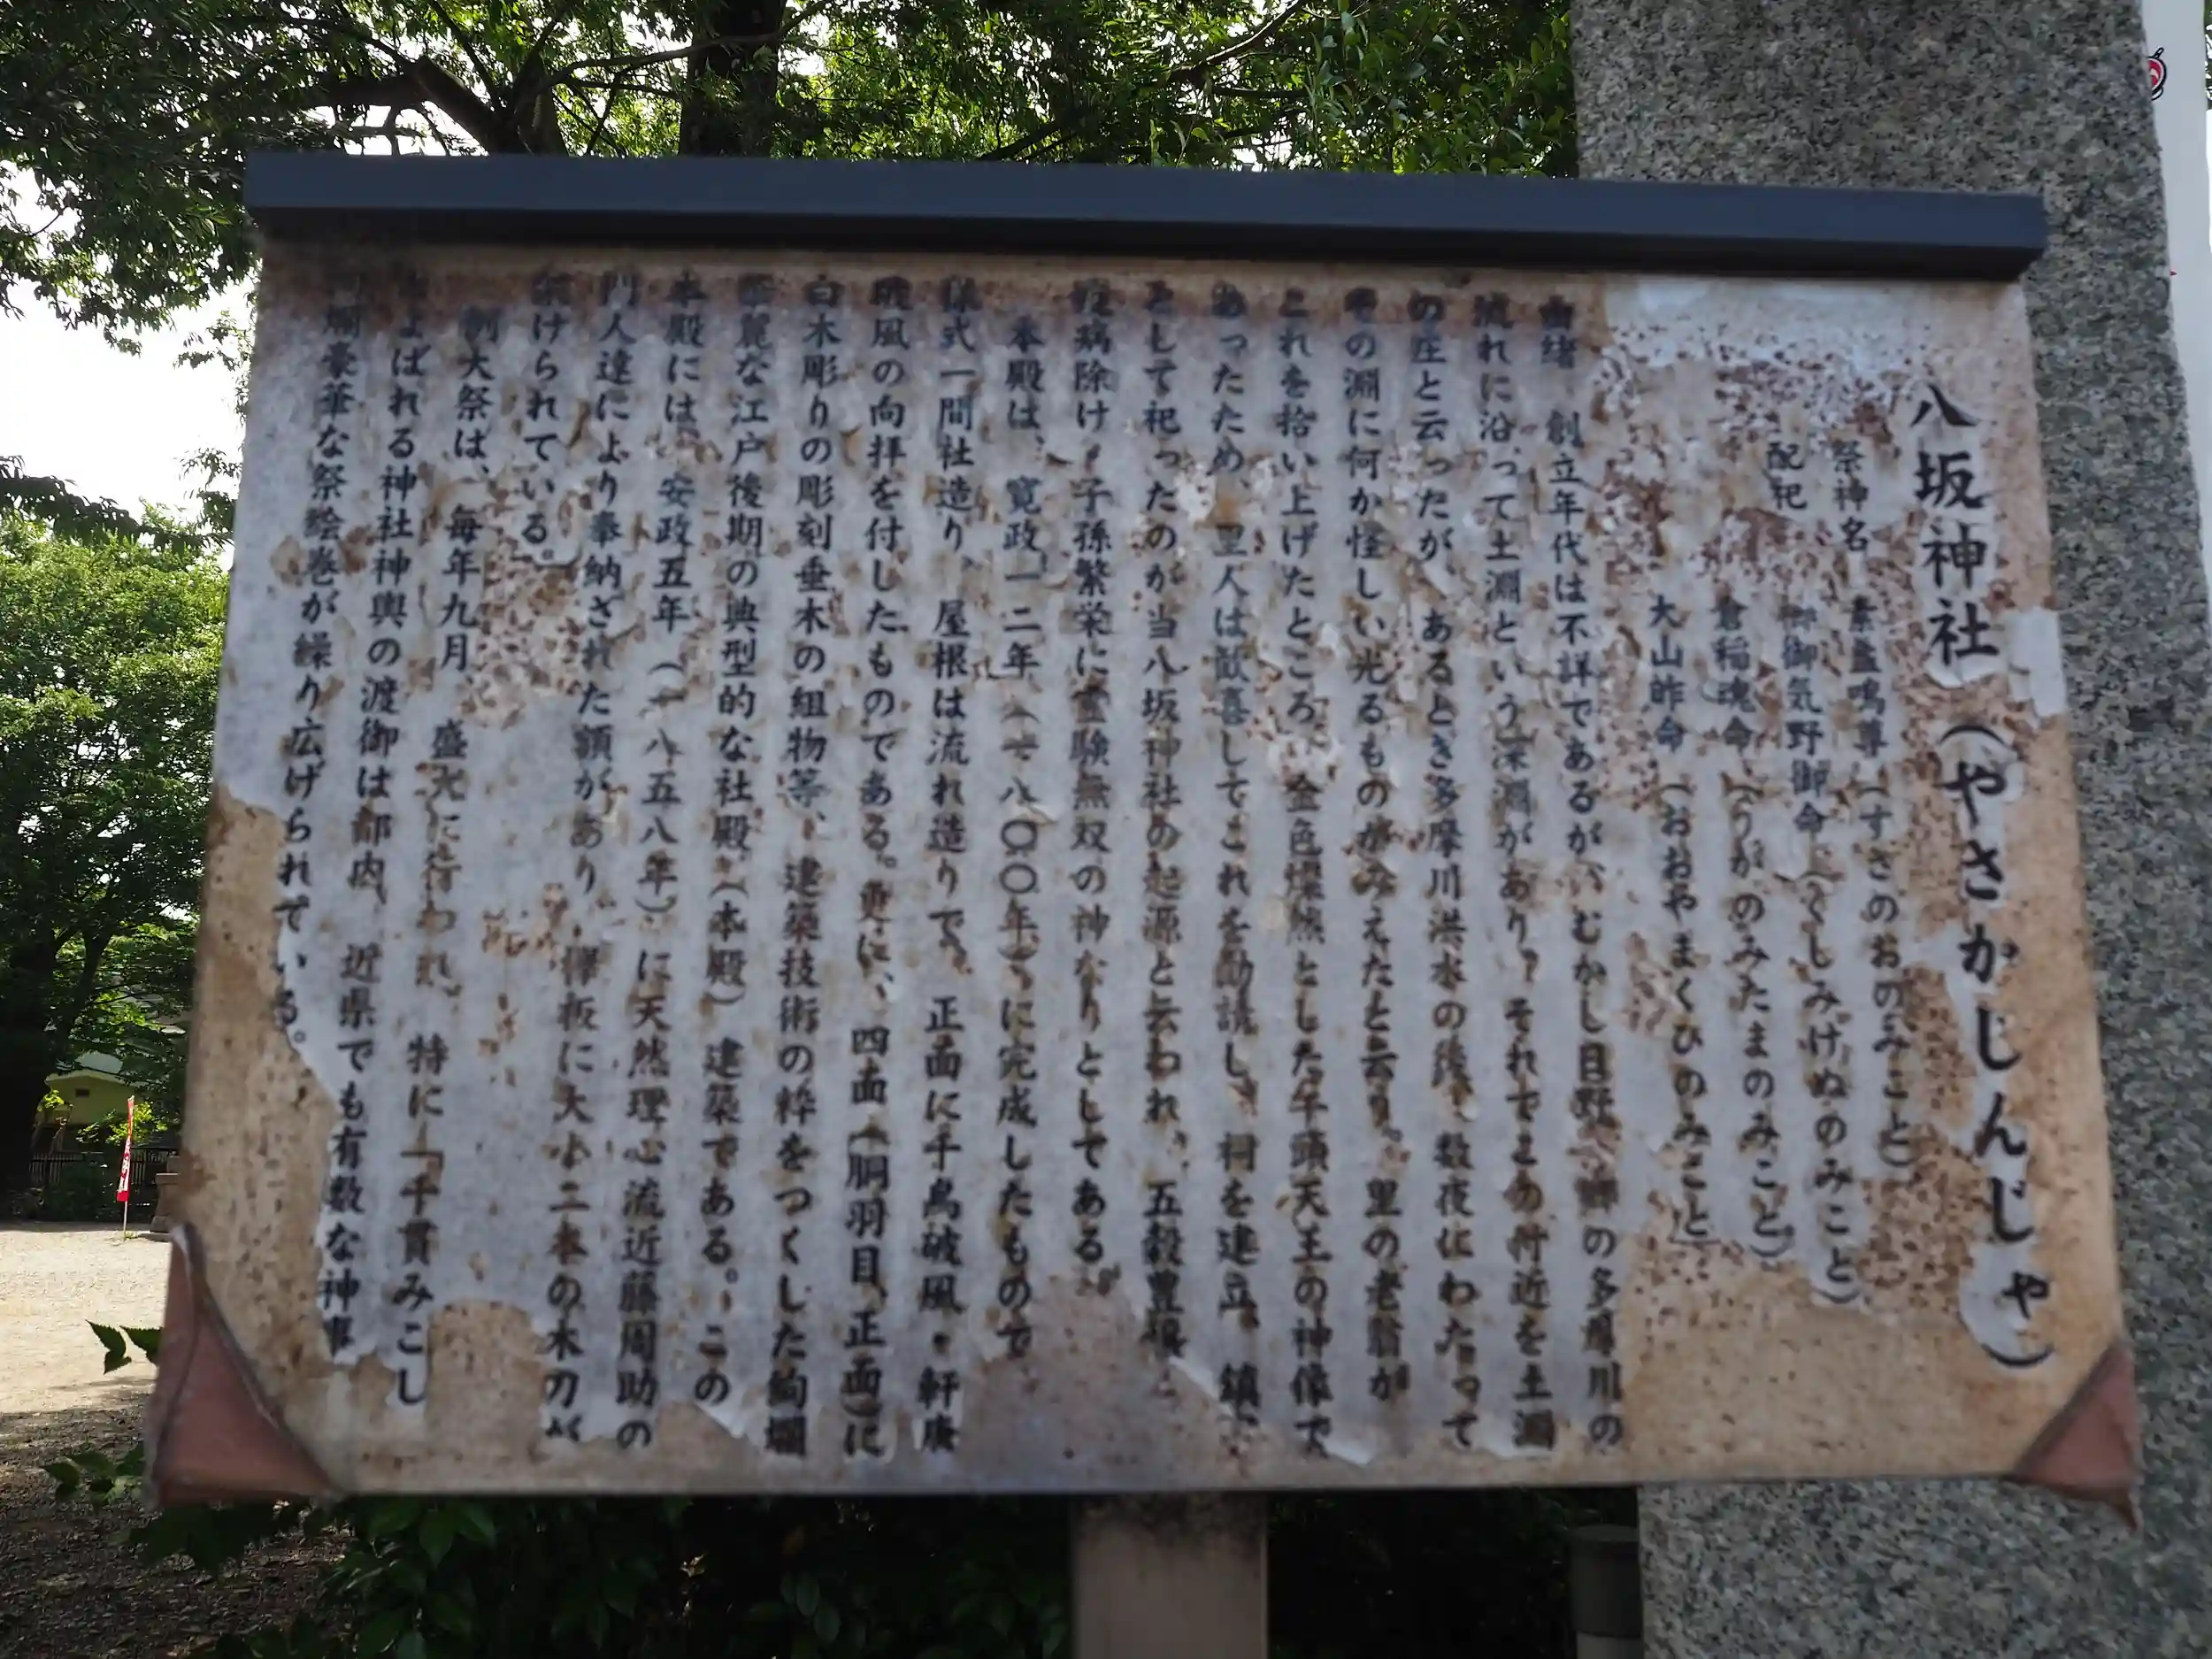 八坂神社（やさかじんじゃ）
祭神名 素盞嗚尊（すさのおのみこと）
配祀 櫛御気野御命（くしみけぬのみこと）
倉稲魂命（うがのみたまのみこと）
大山昨命（おおやまくひのみこと）
由緒 創立年代は不詳であるが、むかし日野本郷の多摩川の
流れに沿って土淵という深淵があり、それでこの付近を土淵
の庄と云ったが、あるとき多摩川洪水の後、数夜にわたって
その淵に何か怪しい光るものがみえたと云う。里の老翁が
これを拾い上げたところ、金色燦然とした牛頭天王の神像で
あったため、里人は歓喜してこれを勧請し、祠を建立、鎮守
として祀ったのが当八坂神社の起源と云われ、五穀豊穣、
疫病除け、子孫繁栄に霊験無双の神なりとしてである
本殿は、寛政一二年（一八〇〇年）に完成したもので
様式一間社造り、屋根は流れ造りで、正面に千鳥破風・軒唐
破風の向拝を付したものである。更に、四面（胴羽目、正面）に
白木彫りの彫刻垂木の組物等、建築技術の粋をつくした絢爛
華麗な江戸後期の典型的な社殿（本殿）建築である。この
本殿には、安政五年（一八五八年）に天然理心流近藤周助の
門人達により奉納された額があり、欅板に大小二本の木刀が
架けられている。
例大祭は、毎年九月、盛大に行われ、特に「千貫みこし
とよばれる神社神輿の渡御は都内、近県でも有数な神事
絢爛豪華な祭絵巻が繰り広げられている。